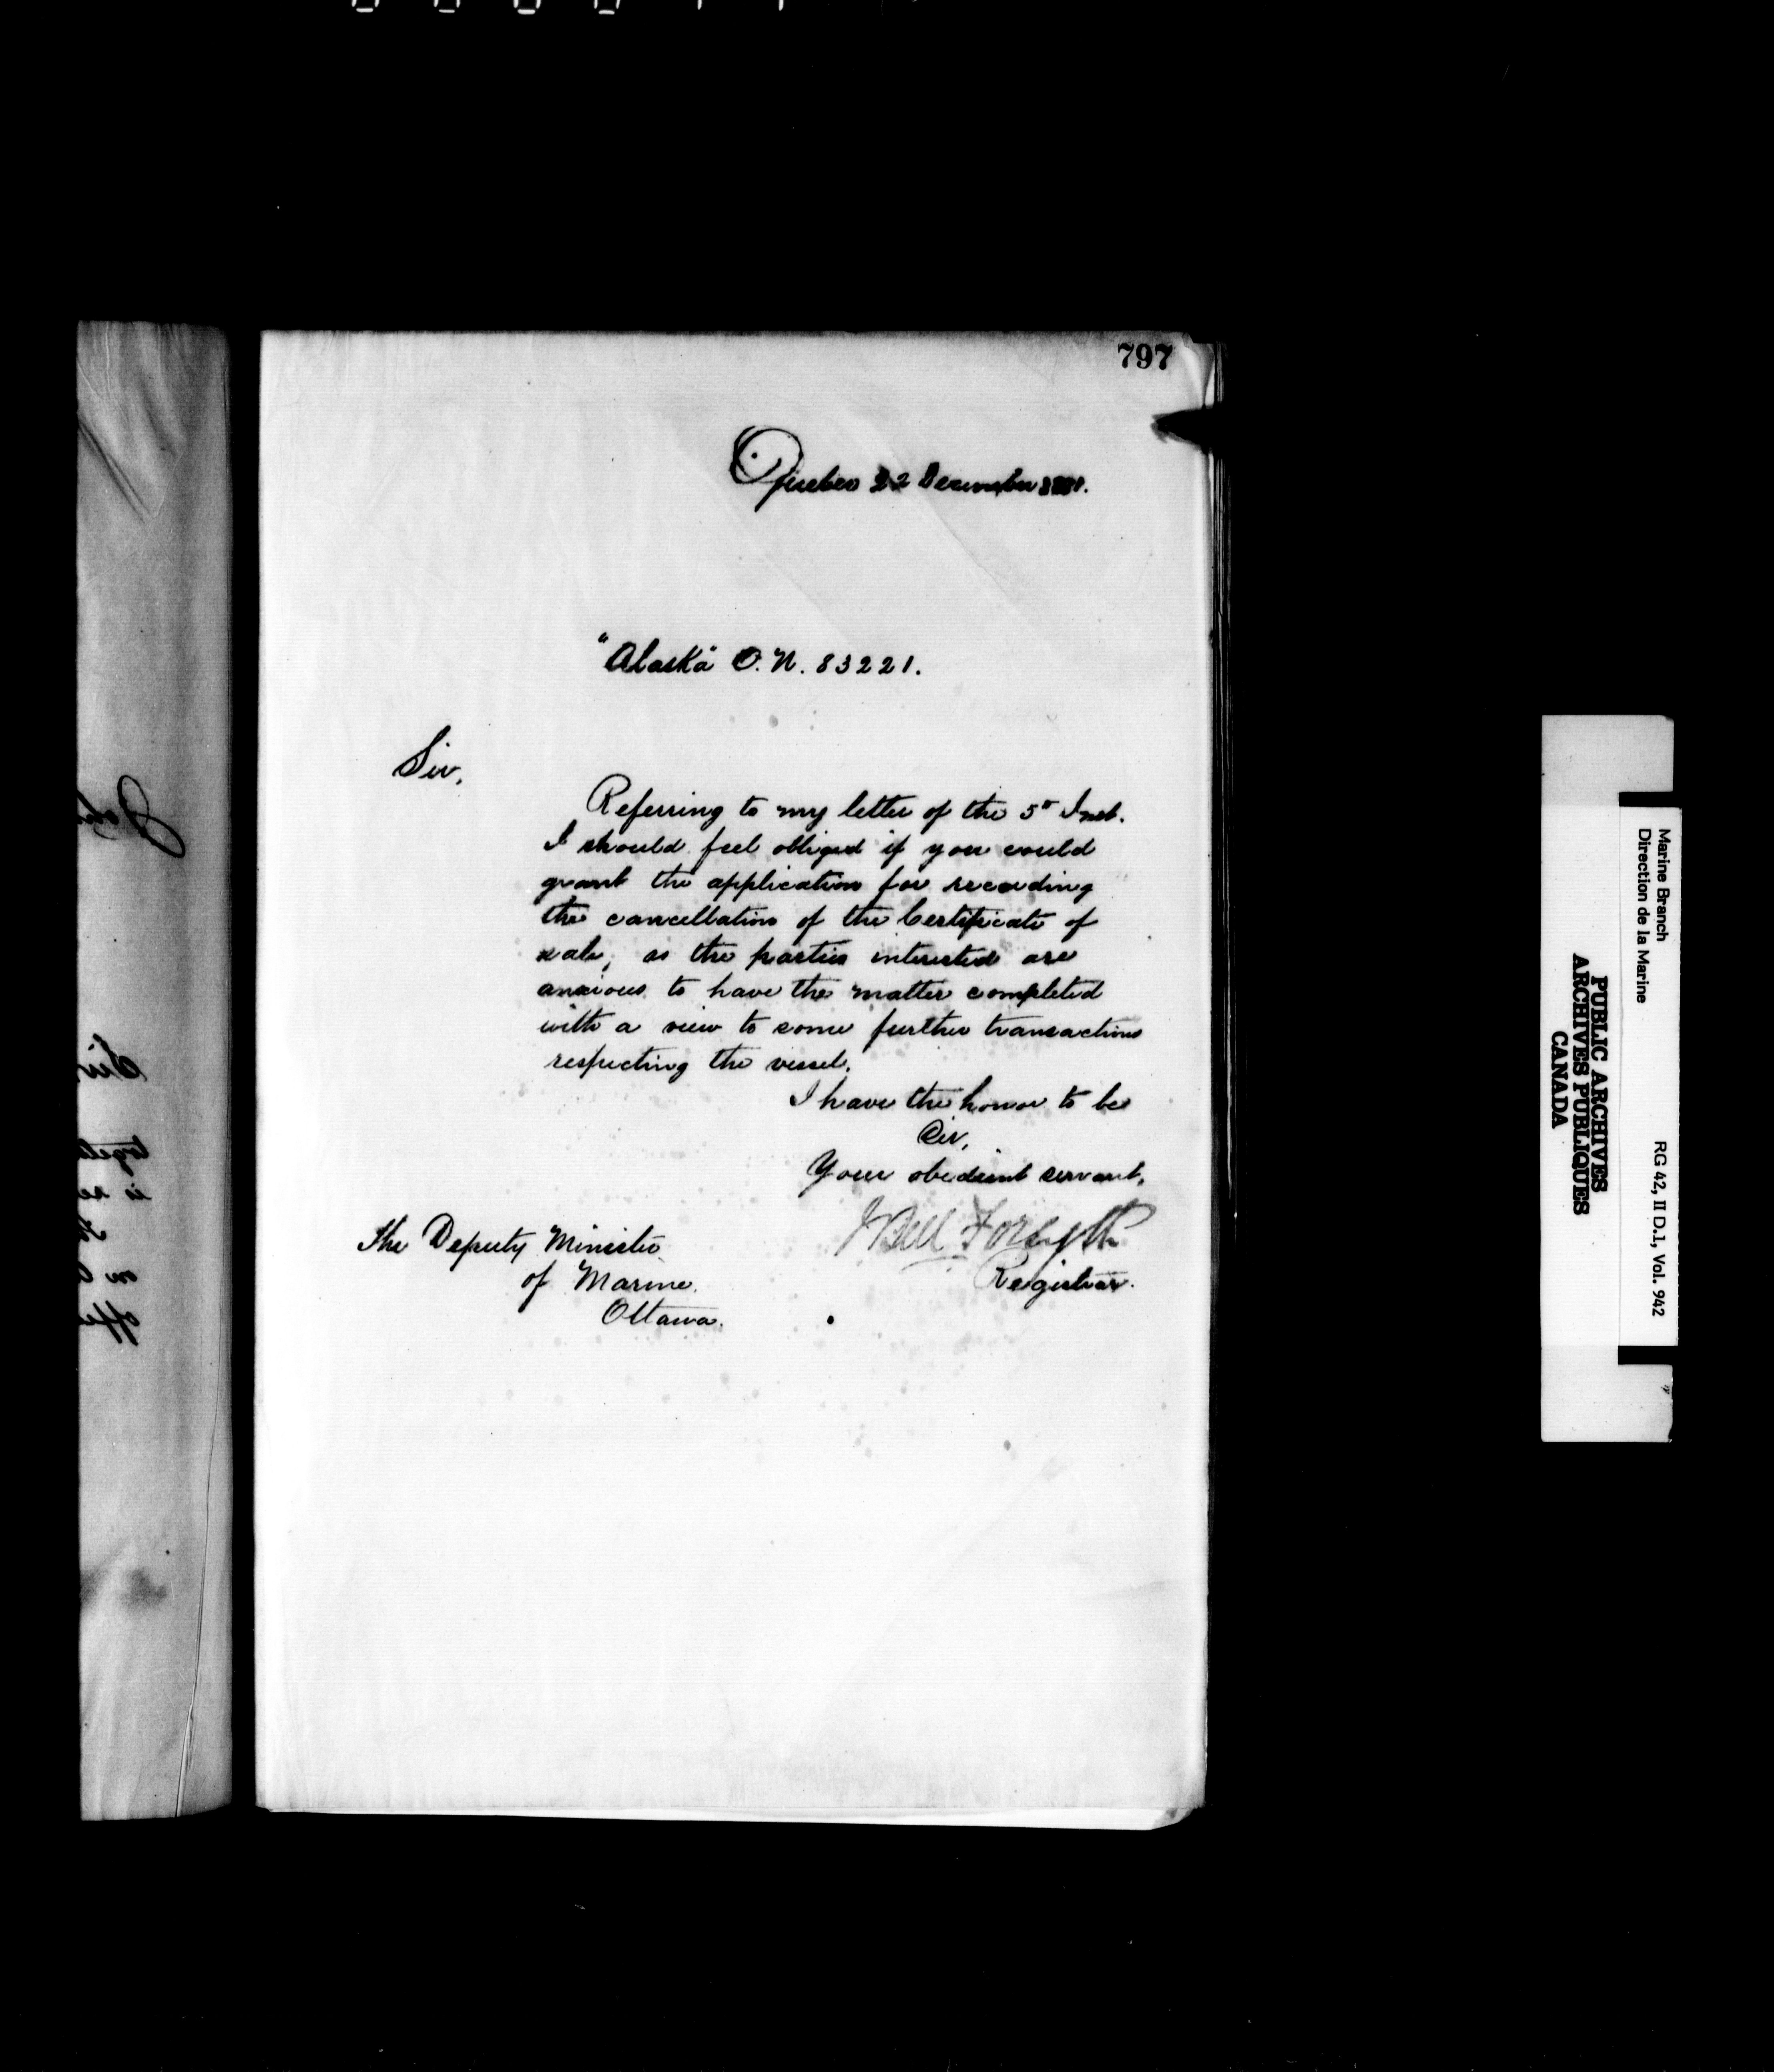 797
Quebec 22 December 1881.
"Alaska" O.N. 83221.
Sir,
Referring to my letter of the 5th Inst.
I should feel obliged if you could
grant the application for recording
the cancellation of the Certificate of
sale, as the parties interested are
anxious to have the matter completed
with a view to some further transactions
respecting the vessel.
I have the honor to be
Sir,
Your obedient servant,
J Bell Forsyth
Registrar.
The Deputy Minister
of Marine.
Ottawa.
Marine Branch
Direction de la Marine
RG 42, II D.1, Vol. 942
PUBLIC ARCHIVES
ARCHIVES PUBLIQUES
CANADA